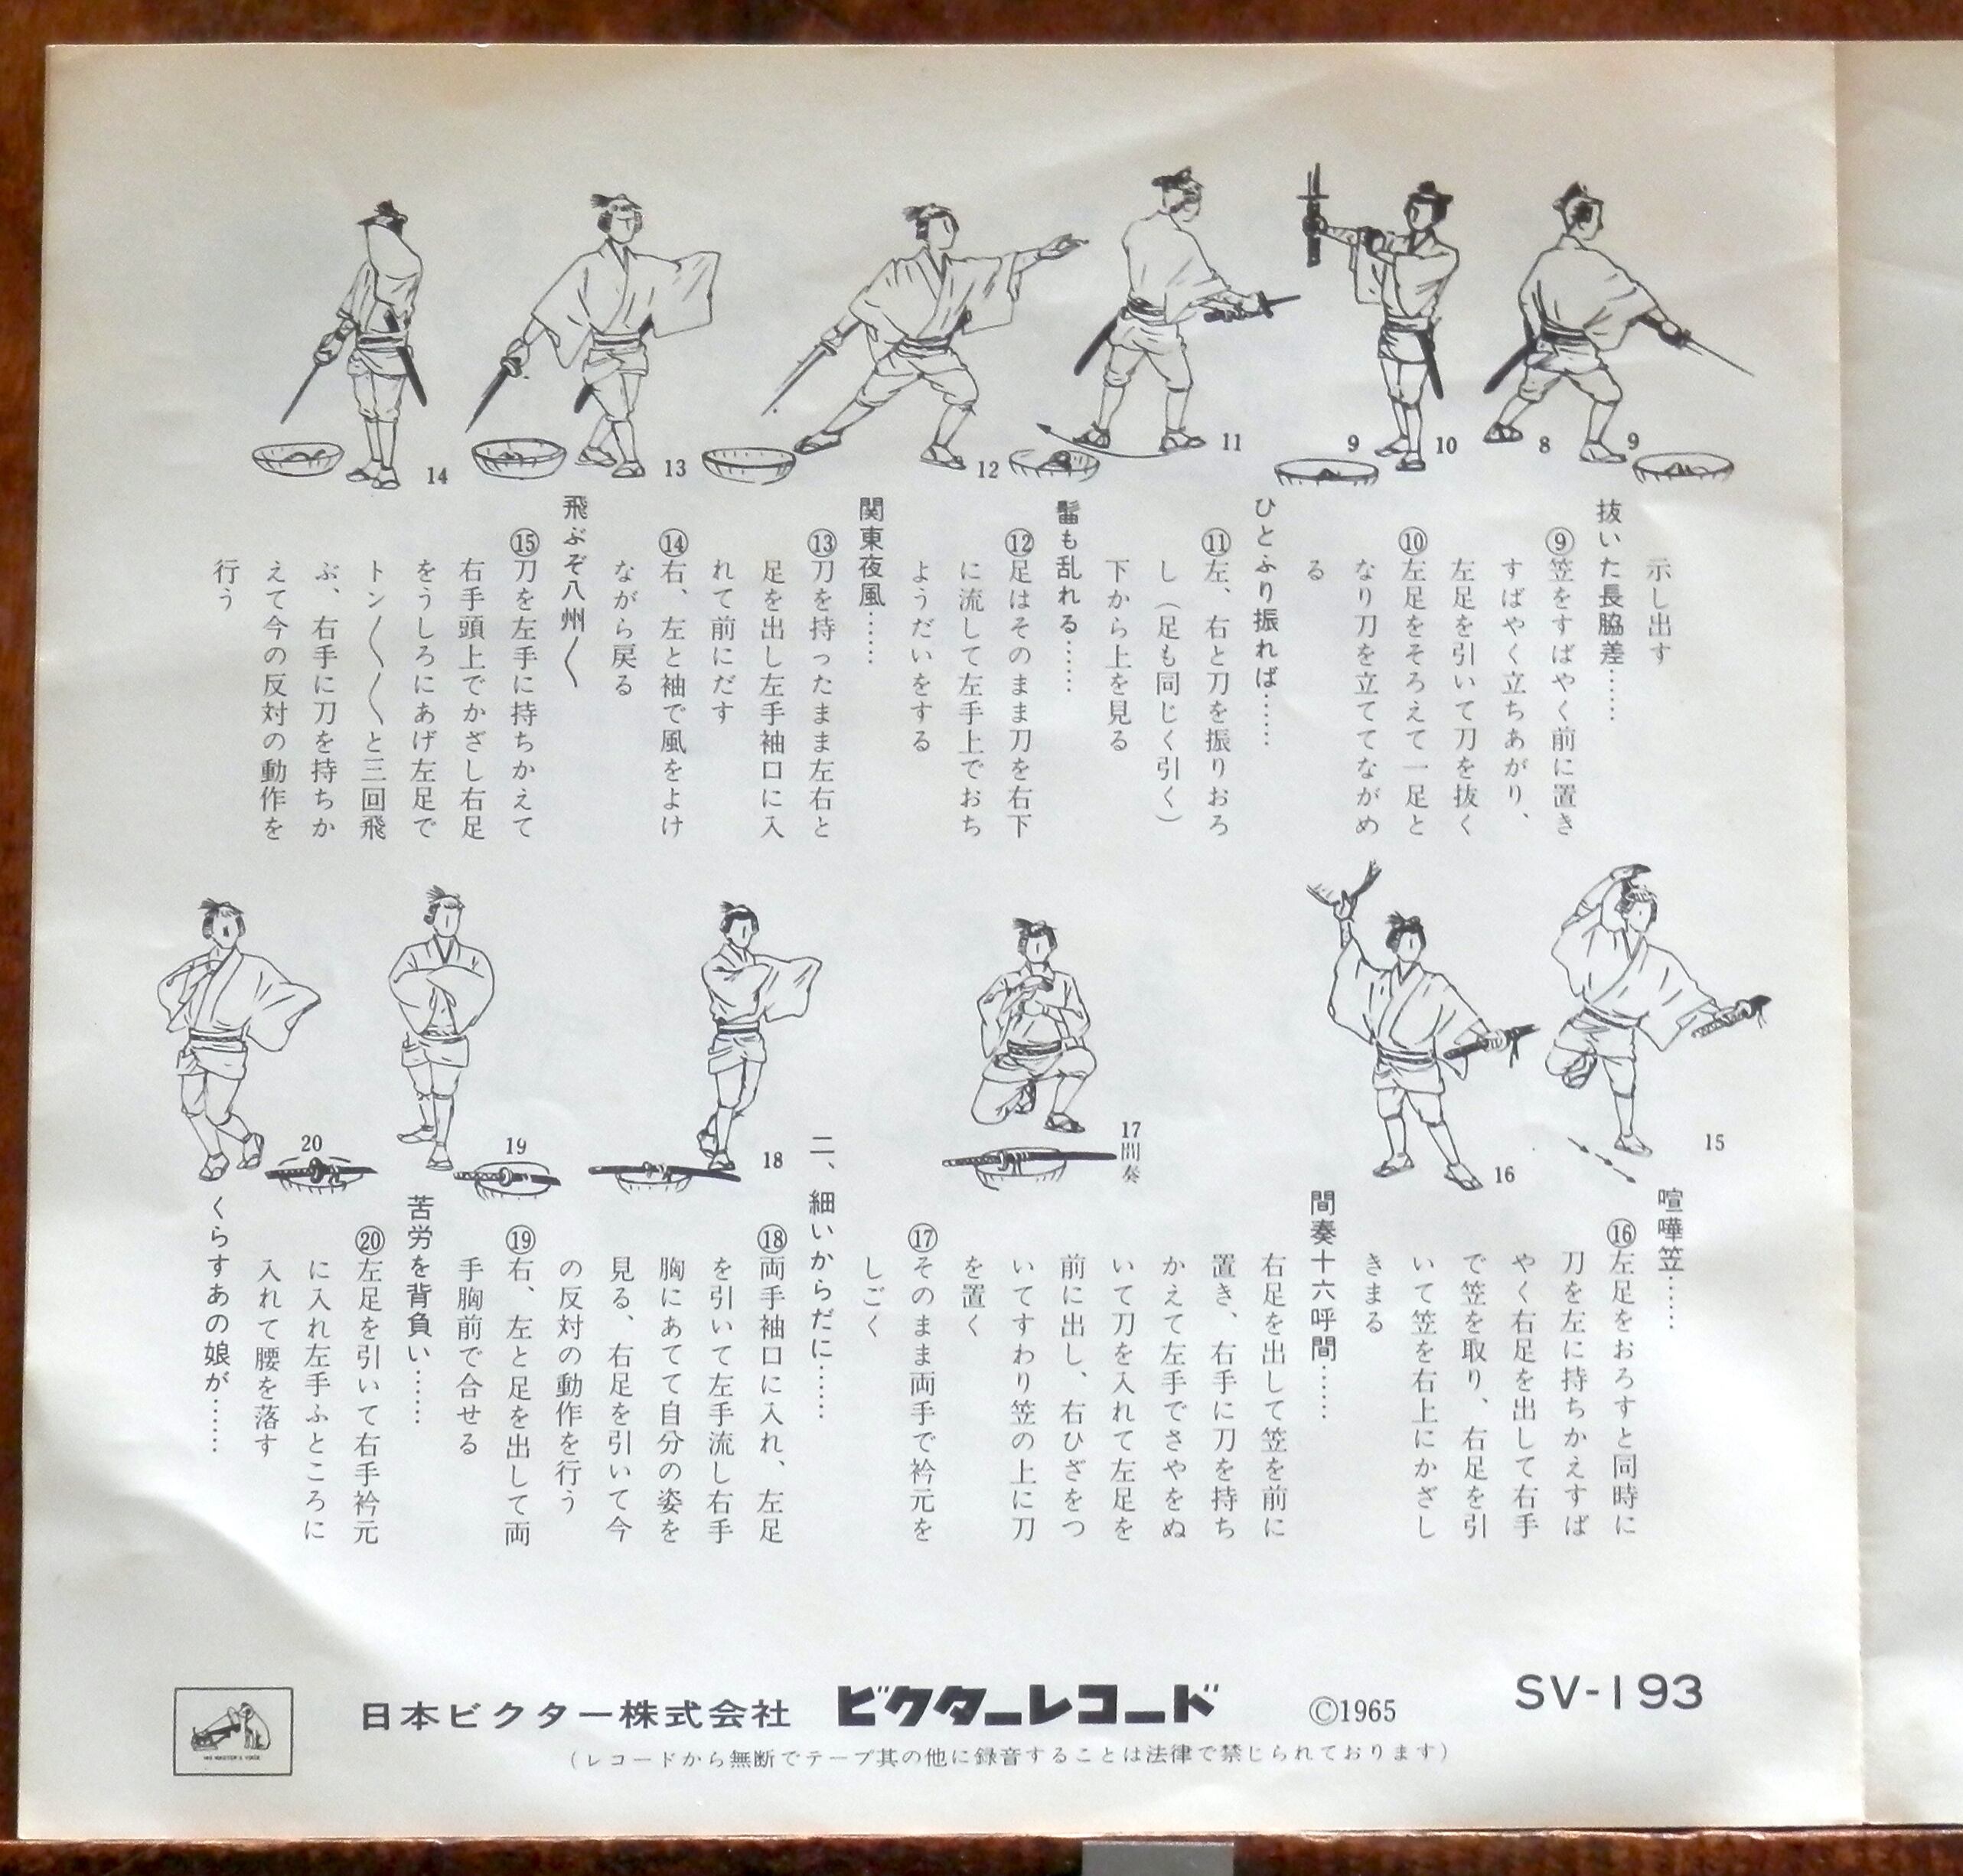 8
9
9
10
11
12
13
14
示し出す
抜いた長脇差……
⑨笠をすばやく前に置き
すばやく立ちあがり、
左足を引いて刀を抜く
⑩左足をそろえて一足と
なり刀を立ててながめ
る
ひとふり振れば……
⑪左、右と刀を振りおろ
し（足も同じく引く）
下から上を見る
も乱れる……
⑫足はそのまま刀を右下
に流して左手上でおち
ようだいをする
関東夜風……
⑬刀を持ったまま左右と
足を出し左手袖口に入
れて前にだす
⑭右、左と袖で風をよけ
ながら戻る
飛ぶぞ八州〱
⑮刀を左手に持ちかえて
右手頭上でかざし右足
をうしろにあげ左足で
トン〱〱と三回飛
ぶ、右手に刀を持ちか
えて今の反対の動作を
行う
15
16
17間奏
18
19
20
喧嘩笠……
⑯左足をおろすと同時に
刀を左に持ちかえすば
やく右足を出して右手
で笠を取り、右足を引
いて笠を右上にかざし
きまる
間奏十六呼間……
右足を出して笠を前に
置き、右手に刀を持ち
かえて左手でさやをぬ
いて刀を入れて左足を
前に出し、右ひざをつ
いてすわり笠の上に刀
を置く
⑰そのまま両手で衿元を
しごく
二、細いからだに……
⑱両手袖口に入れ、左足
を引いて左手流し右手
胸にあてて自分の姿を
見る、右足を引いて今
の反対の動作を行う
⑲右、左と足を出して両
手胸前で合せる
苦労を背負い……
⑳左足を引いて右手衿元
に入れ左手ふところに
入れて腰を落す
くらすあの娘が……
HIS MASTER'S VOICE
日本ビクター株式会社 ビクターレコード ©1965 SV-193
（レコードから無断でテープ其の他に録音することは法律で禁じられております）